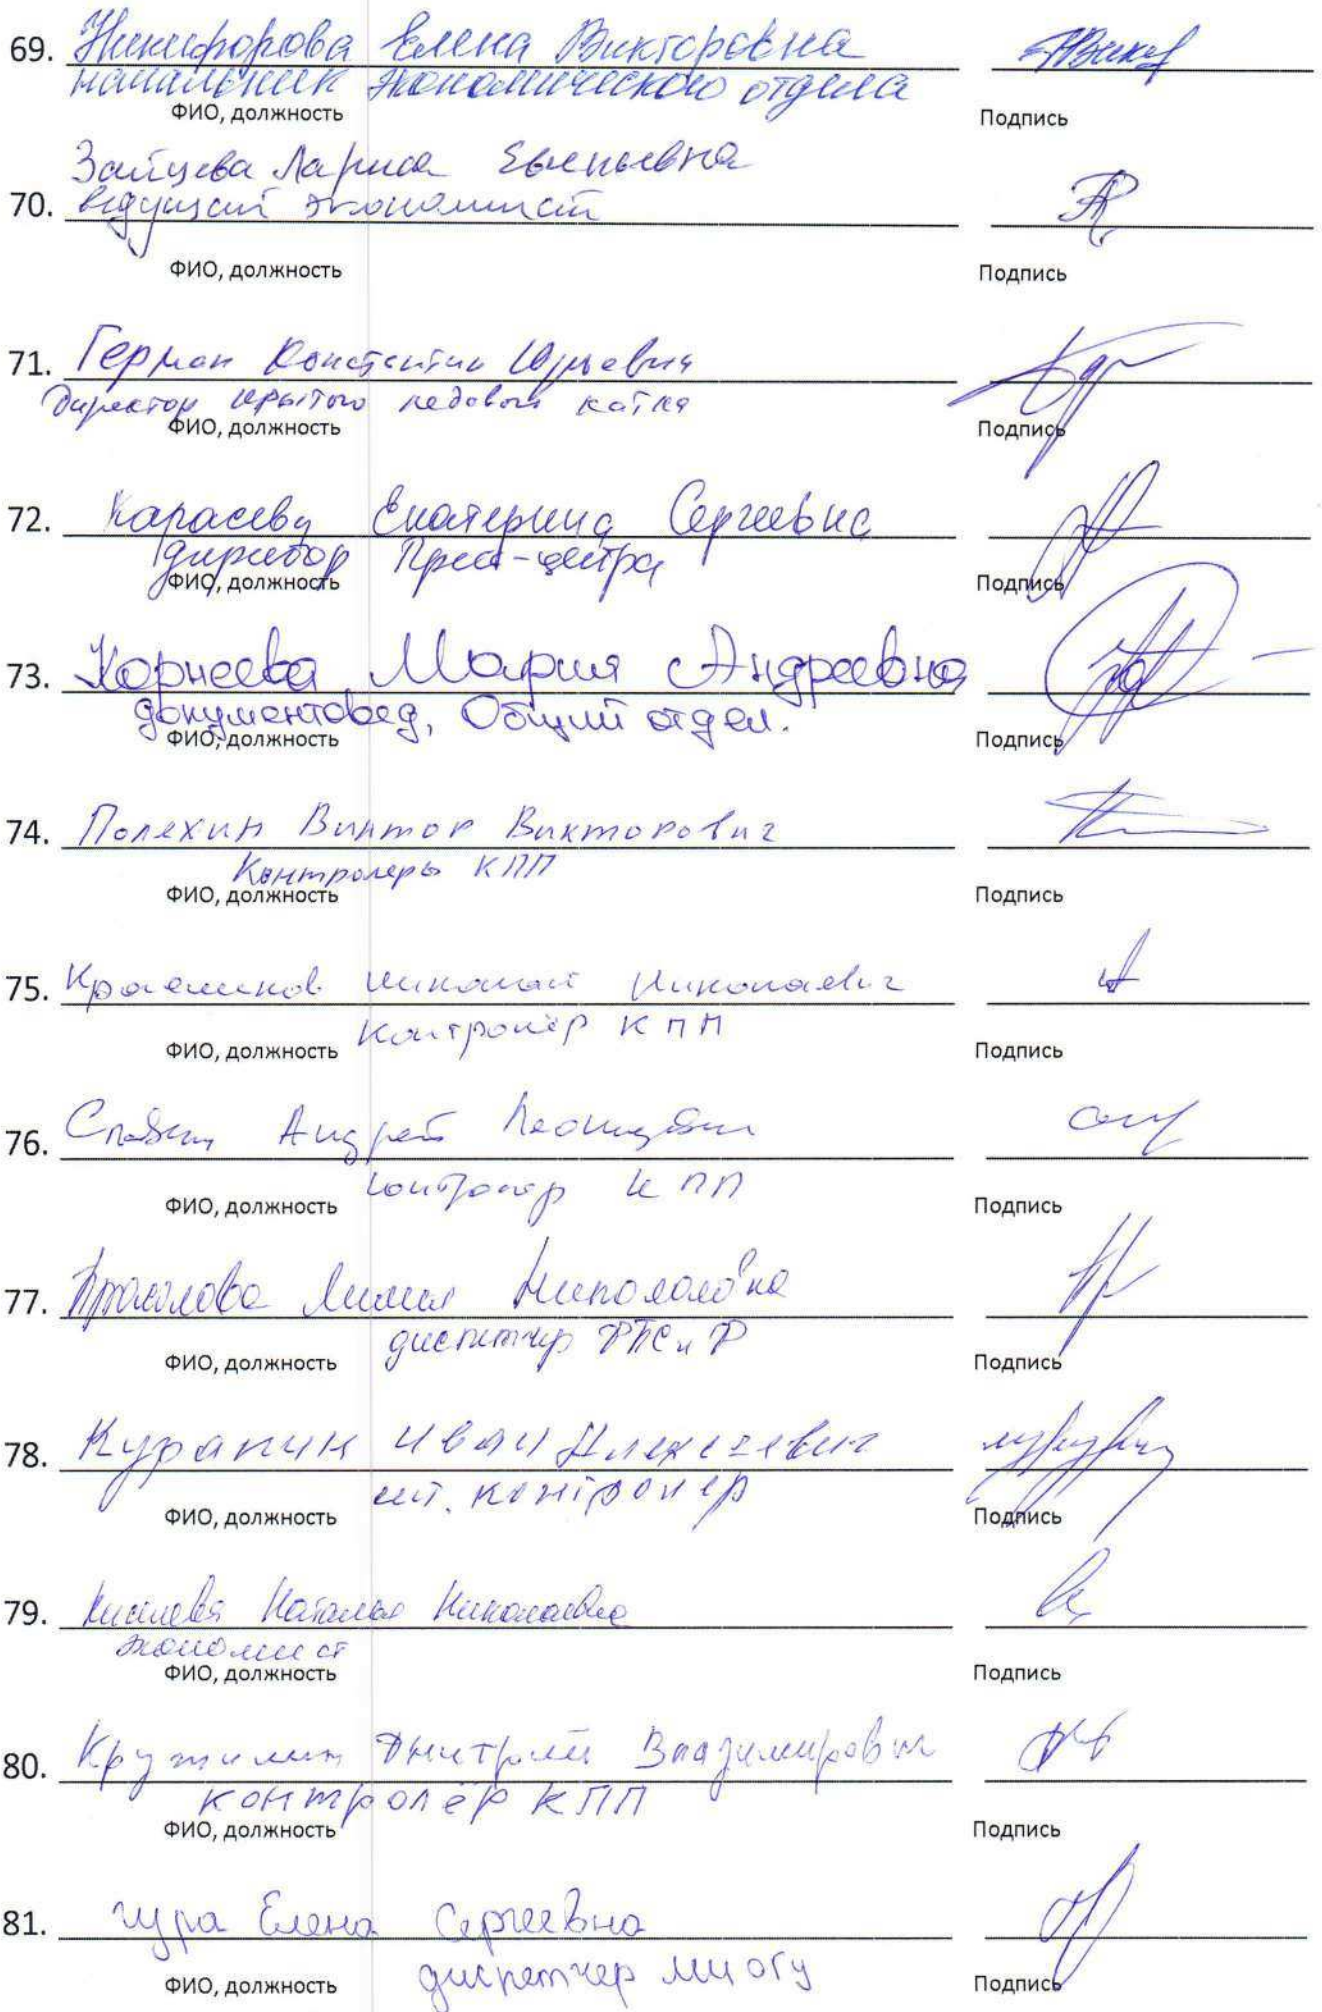 69. Никифорова Елена Викторовна
начальник экономического отдела
ФИО, должность Подпись
Зайцева Лариса Евгеньевна
70. ведущий экономист
ФИО, должность Подпись
71. Герман Константин Юрьевич
Директор крытого ледового катка
ФИО, должность Подпись
72. Карасева Екатерина Сергеевна
директор Пресс-центра
ФИО, должность Подпись
73. Корнеева Мария Андреевна
документовед, Общий отдел.
ФИО, должность Подпись
74. Полехин Виктор Викторович
Контролеры КПП
ФИО, должность Подпись
75. Николай Николаевич
контролёр КПП
ФИО, должность Подпись
76. Андрей Леонидович
контролер КПП
ФИО, должность Подпись
77. Лилия Николаевна
диспетчер
ФИО, должность Подпись
78. Курапин Иван Алексеевич
ст. контролер
ФИО, должность Подпись
79. Киселева Наталья Николаевна
экономист
ФИО, должность Подпись
80. Кружилин Дмитрий Владимирович
контролёр КПП
ФИО, должность Подпись
81. Гура Елена Сергеевна
диспетчер
ФИО, должность Подпись